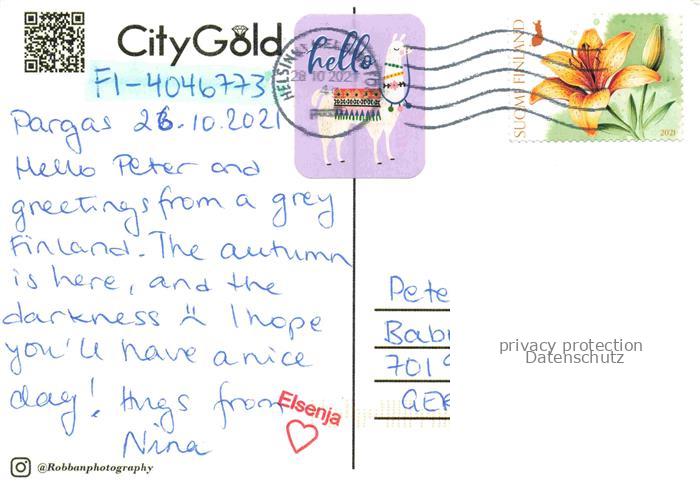 CityGold
FI-4046773
Pargas 26.10.2021
Hello Peter and
greetings from a grey
Finland. The autumn
is here, and the
darkness :( I hope
you'll have a nice
day! Hugs from
Nina
@Robbanphotography
hello
HELSINKI
28 10 2021
SUOMI FINLAND
2021
Elsenja
Pete
Bab
701
GER
privacy protection
Datenschutz